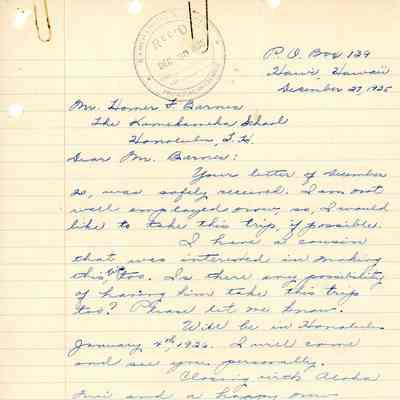 REC'D
DEC 30 1935
P. O. Box 129
Hawi, Hawaii
December 27, 1935
Mr. Homer F. Barnes
The Kamehameha School
Honolulu, T. H.
Dear Mr. Barnes:
Your letter of December
20, was safely received. I am not
well employed now, so, I would
like to take this trip, if possible.
I have a cousin
that was interested in making
this, too. Is there any possibility
of having him take this trip
too? Please let me know.
Will be in Honolulu
January 4th, 1936. I will come
and see you personally.
Closing with Aloha
Nui and a happy